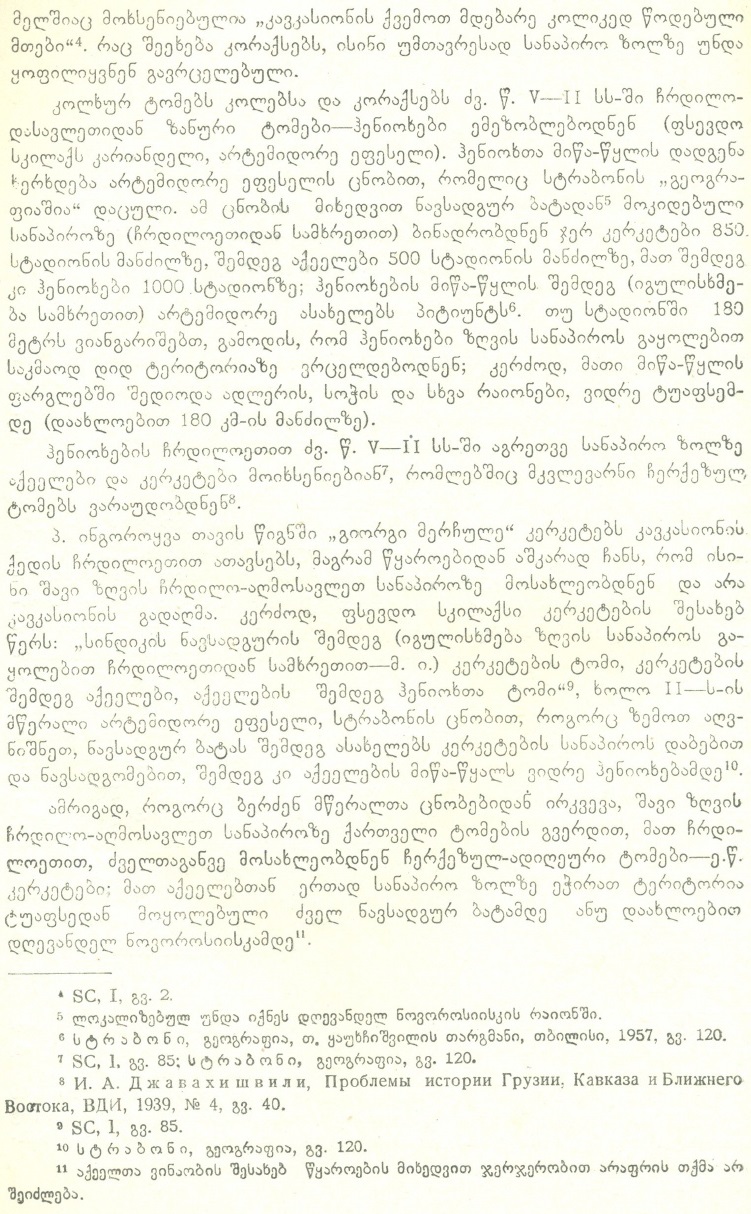 მელშიაც მოხსენიებულია „კავკასიონის ქვემოთ მდებარე კოლიკედ წოდებული
მთები“⁴. რაც შეეხება კორაქსებს, ისინი უმთავრესად სანაპირო ზოლზე უნდა
ყოფილიყვნენ გავრცელებული.
კოლხურ ტომებს კოლებსა და კორაქსებს ძვ. წ. V—II სს-ში ჩრდილო-
დასავლეთიდან ზანური ტომები—ჰენიოხები ემეზობლებოდნენ (ფსევდო
სკილაქს კარიანდელი, არტემიდორე ეფესელი). ჰენიოხთა მიწა-წყლის დადგენა
ხერხდება არტემიდორე ეფესელის ცნობით, რომელიც სტრაბონის „გეოგრა-
ფიაშია“ დაცული. ამ ცნობის მიხედვით ნავსადგურ ბატადან⁵ მოკიდებული
სანაპიროზე (ჩრდილოეთიდან სამხრეთით) ბინადრობდნენ ჯერ კერკეტები 850
სტადიონის მანძილზე, შემდეგ აქეელები 500 სტადიონის მანძილზე, მათ შემდეგ
კი ჰენიოხები 1000 სტადიონზე; ჰენიოხების მიწა-წყლის შემდეგ (იგულისხმე-
ბა სამხრეთით) არტემიდორე ასახელებს პიტიუნტს⁶. თუ სტადიონში 180
მეტრს ვიანგარიშებთ, გამოდის, რომ ჰენიოხები ზღვის სანაპიროს გაყოლებით
საკმაოდ დიდ ტერიტორიაზე ვრცელდებოდნენ; კერძოდ, მათი მიწა-წყლის
ფარგლებში შედიოდა ადლერის, სოჭის და სხვა რაიონები, ვიდრე ტუაფსემ-
დე (დაახლოებით 180 კმ-ის მანძილზე).
ჰენიოხების ჩრდილოეთით ძვ. წ. V—II სს-ში აგრეთვე სანაპირო ზოლზე
აქეელები და კერკეტები მოიხსენიებიან⁷, რომლებშიც მკვლევარნი ჩერქეზულ
ტომებს ვარაუდობდნენ⁸.
პ. ინგოროყვა თავის წიგნში „გიორგი მერჩულე“ კერკეტებს კავკასიონის
ქედის ჩრდილოეთით ათავსებს, მაგრამ წყაროებიდან აშკარად ჩანს, რომ ისი-
ნი შავი ზღვის ჩრდილო-აღმოსავლეთ სანაპიროზე მოსახლეობდნენ და არა
კავკასიონის გადაღმა. კერძოდ, ფსევდო სკილაქსი კერკეტების შესახებ
წერს: „სინდიკის ნავსადგურის შემდეგ (იგულისხმება ზღვის სანაპიროს გა-
ყოლებით ჩრდილოეთიდან სამხრეთით—მ. ი.) კერკეტების ტომი, კერკეტების
შემდეგ აქეელები, აქეელების შემდეგ ჰენიოხთა ტომი“⁹, ხოლო II—ს-ის
მწერალი არტემიდორე ეფესელი, სტრაბონის ცნობით, როგორც ზემოთ აღვ-
ნიშნეთ, ნავსადგურ ბატას შემდეგ ასახელებს კერკეტების სანაპიროს დაბებით
და ნავსადგომებით, შემდეგ კი აქეელების მიწა-წყალს ვიდრე ჰენიოხებამდე¹⁰.
ამრიგად, როგორც ბერძენ მწერალთა ცნობებიდან ირკვევა, შავი ზღვის
ჩრდილო-აღმოსავლეთ სანაპიროზე ქართველი ტომების გვერდით, მათ ჩრდი-
ლოეთით, ძველთაგანვე მოსახლეობდნენ ჩერქეზულ-ადიღეური ტომები—ე.წ.
კერკეტები; მათ აქეელებთან ერთად სანაპირო ზოლზე ეჭირათ ტერიტორია
ტუაფსედან მოყოლებული ძველ ნავსადგურ ბატამდე ანუ დაახლოებით
დღევანდელ ნოვოროსიისკამდე¹¹.
⁴ SC, I, გვ. 2.
⁵ ლოკალიზებულ უნდა იქნეს დღევანდელ ნოვოროსიისკის რაიონში.
⁶ სტრაბონი, გეოგრაფია, თ. ყაუხჩიშვილის თარგმანი, თბილისი, 1957, გვ. 120.
⁷ SC, I, გვ. 85; სტრაბონი, გეოგრაფია, გვ. 120.
⁸ И. А. Джавахишвили, Проблемы истории Грузии, Кавказа и Ближнего
Востока, ВДИ, 1939, № 4, გვ. 40.
⁹ SC, I, გვ. 85.
¹⁰ სტრაბონი, გეოგრაფია, გვ. 120.
¹¹ აქეელთა ვინაობის შესახებ წყაროების მიხედვით ჯერჯერობით არაფრის თქმა არ
შეიძლება.